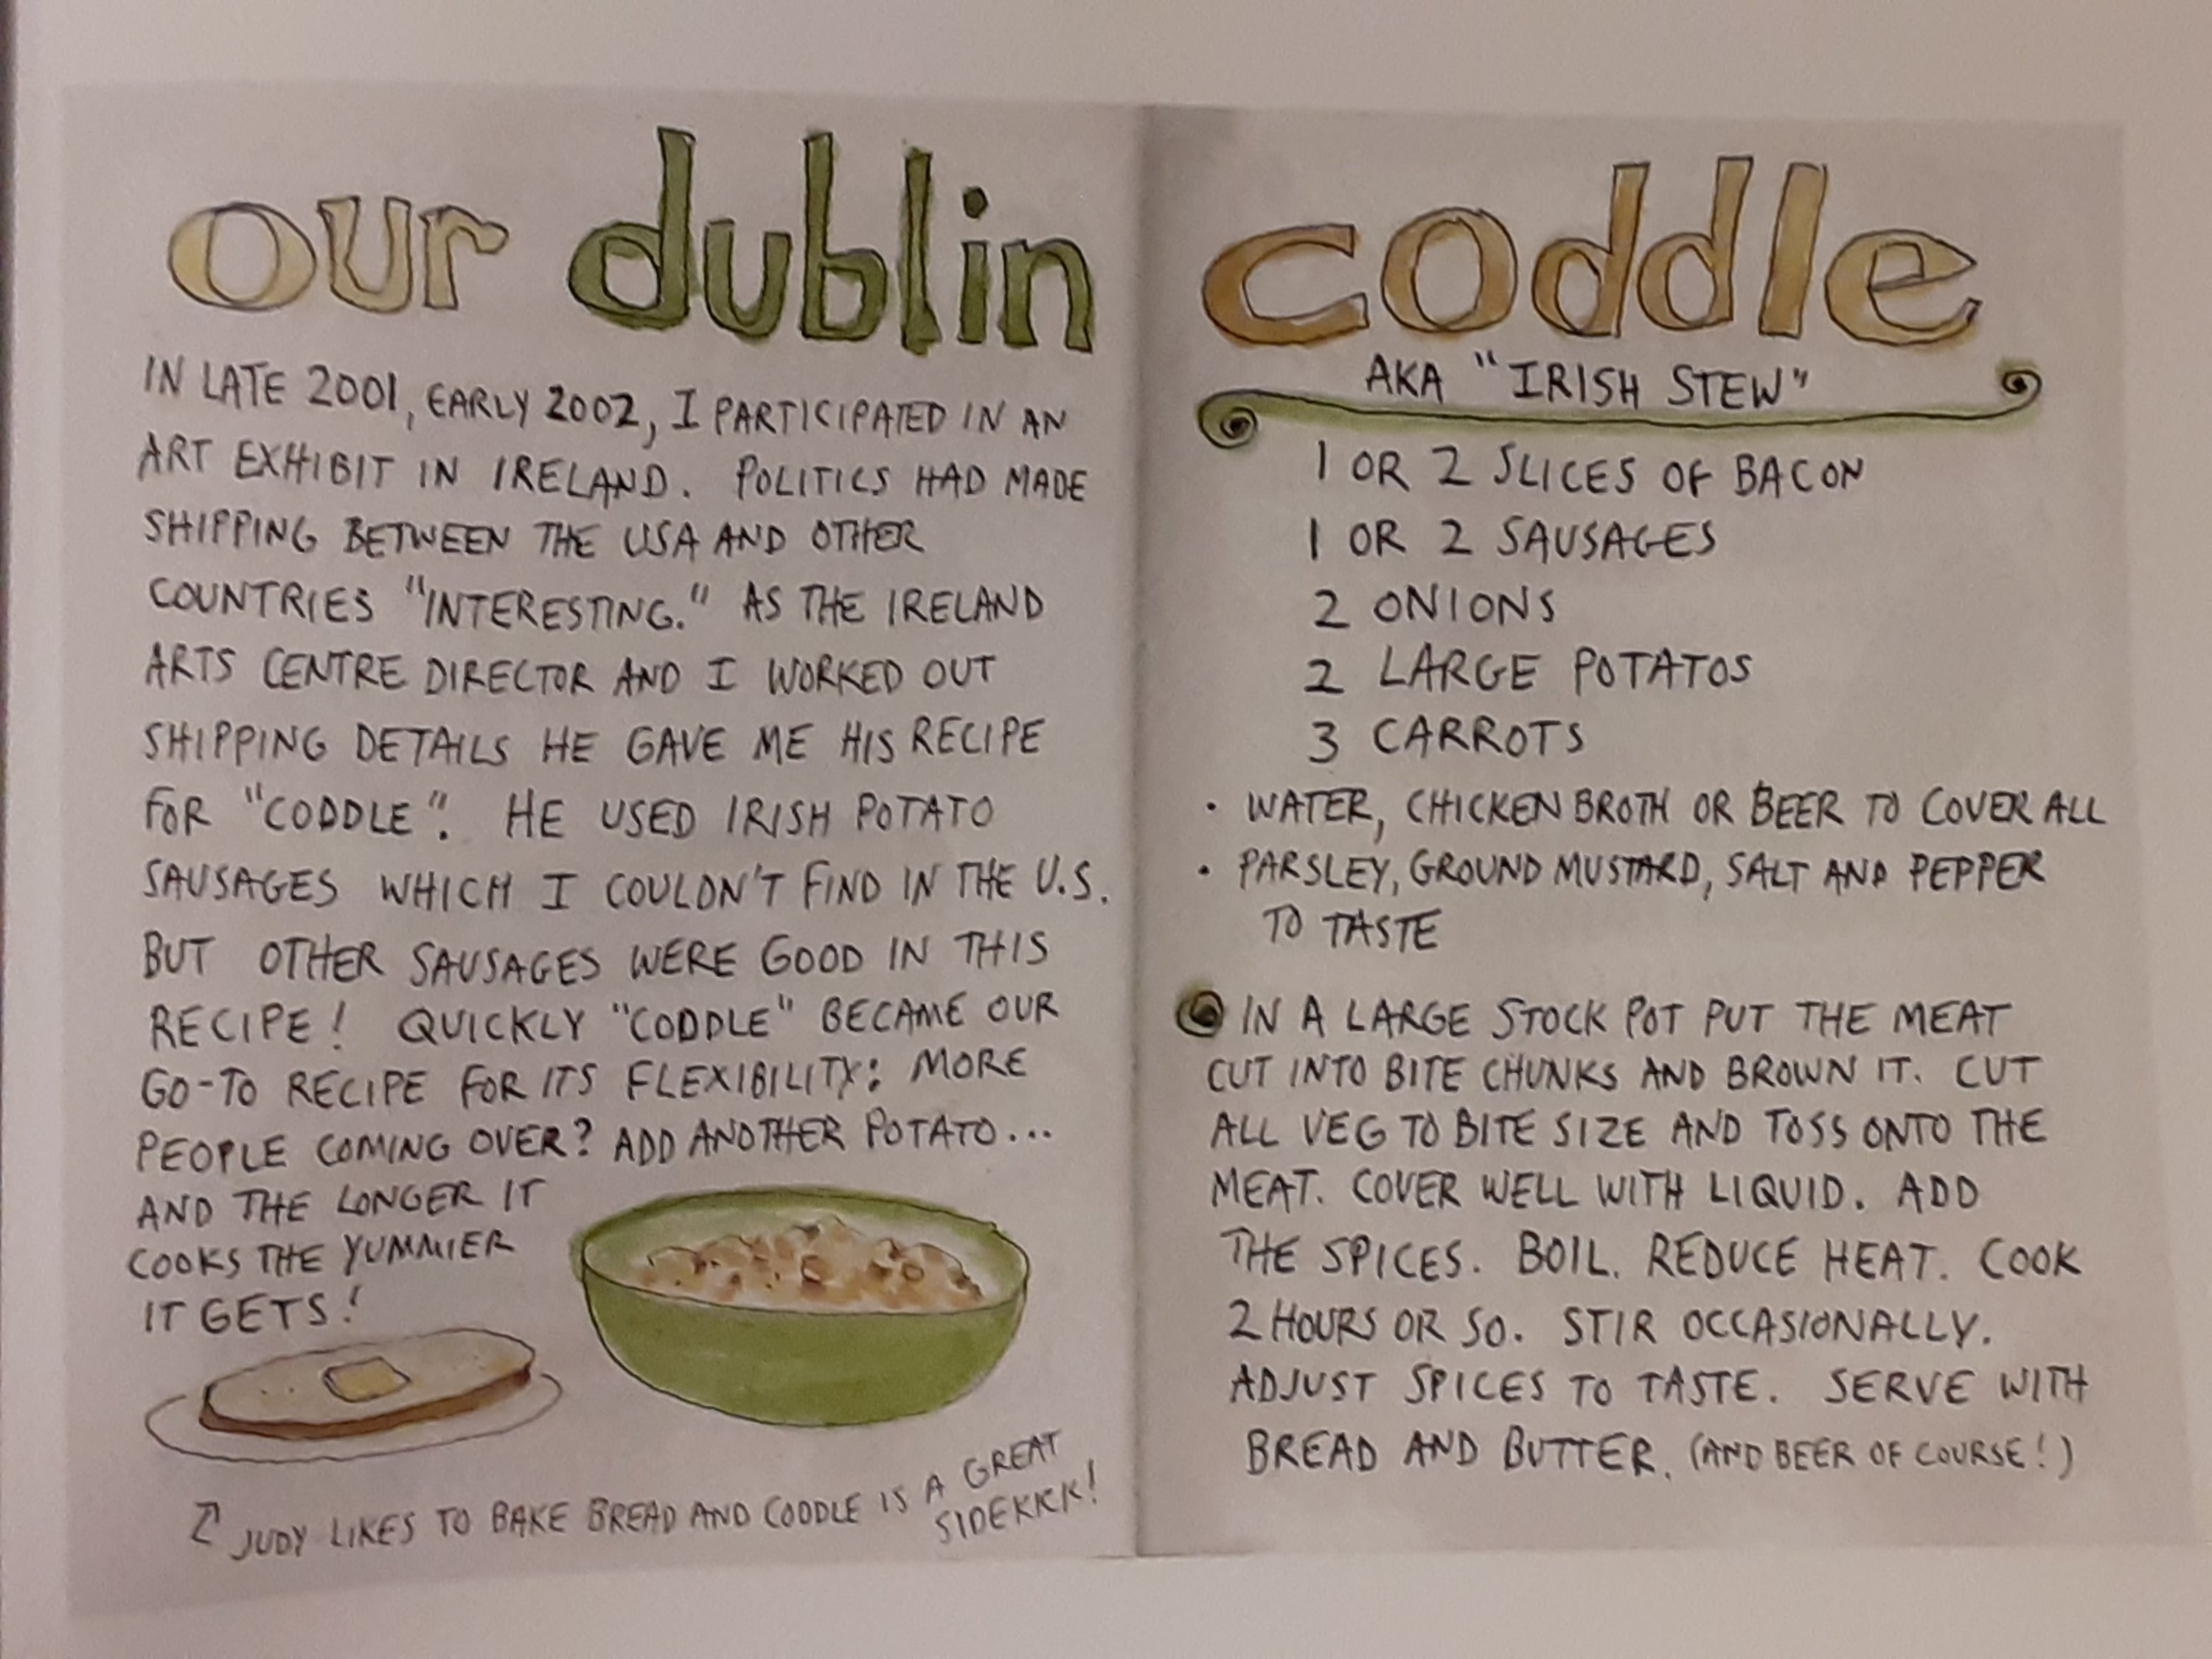 our dublin
IN LATE 2001, EARLY 2002, I PARTICIPATED IN AN
ART EXHIBIT IN IRELAND. POLITICS HAD MADE
SHIPPING BETWEEN THE USA AND OTHER
COUNTRIES "INTERESTING." AS THE IRELAND
ARTS CENTRE DIRECTOR AND I WORKED OUT
SHIPPING DETAILS HE GAVE ME HIS RECIPE
FOR "CODDLE". HE USED IRISH POTATO
SAUSAGES WHICH I COULDN'T FIND IN THE U.S.
BUT OTHER SAUSAGES WERE GOOD IN THIS
RECIPE! QUICKLY "CODDLE" BECAME OUR
GO-TO RECIPE FOR ITS FLEXIBILITY: MORE
PEOPLE COMING OVER? ADD ANOTHER POTATO...
AND THE LONGER IT
COOKS THE YUMMIER
IT GETS!
JUDY LIKES TO BAKE BREAD AND CODDLE IS A GREAT
SIDEKICK!
coddle
AKA "IRISH STEW"
1 OR 2 SLICES OF BACON
1 OR 2 SAUSAGES
2 ONIONS
2 LARGE POTATOS
3 CARROTS
• WATER, CHICKEN BROTH OR BEER TO COVER ALL
• PARSLEY, GROUND MUSTARD, SALT AND PEPPER
TO TASTE
IN A LARGE STOCK POT PUT THE MEAT
CUT INTO BITE CHUNKS AND BROWN IT. CUT
ALL VEG TO BITE SIZE AND TOSS ONTO THE
MEAT. COVER WELL WITH LIQUID. ADD
THE SPICES. BOIL. REDUCE HEAT. COOK
2 HOURS OR SO. STIR OCCASIONALLY.
ADJUST SPICES TO TASTE. SERVE WITH
BREAD AND BUTTER. (AND BEER OF COURSE!)